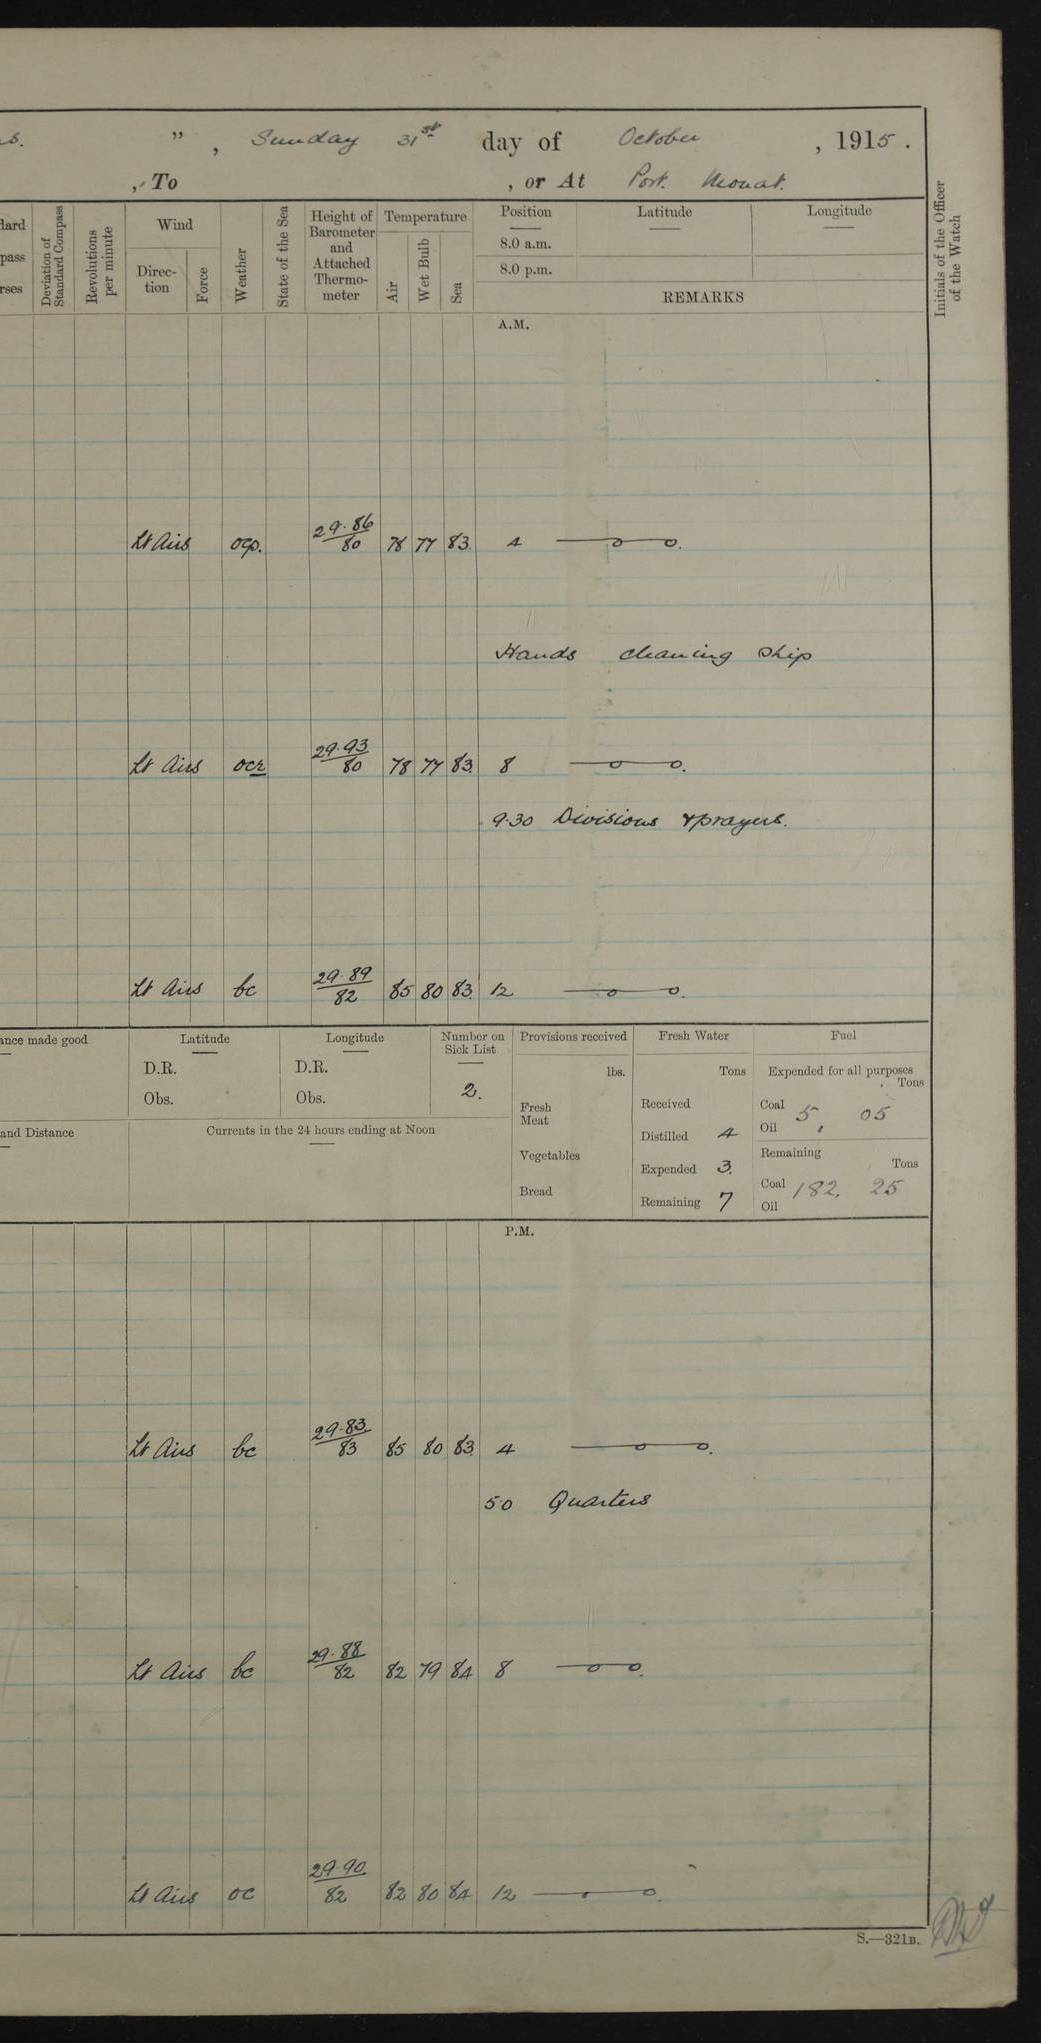 s. ” , Sunday 31st day of October , 1915.
, To , or At Port Mouat.
dard
pass
rses
Deviation of Standard Compass
Revolutions per minute
Wind
Direc-
tion
Force
Weather
State of the Sea
Height of
Barometer
and
Attached
Thermo-
meter
Temperature
Air
Wet Bulb
Sea
Position
8.0 a.m.
8.0 p.m.
Latitude
Longitude
REMARKS
Initials of the Officer of the Watch
A.M.
Lt Airs ocp. 29.86/80 78 77 83 4 —o—o.
Hands cleaning ship
Lt Airs ocr 29.93/80 78 77 83 8 —o—o.
9.30 Divisions & prayers.
Lt Airs bc 29.89/82 85 80 83 12 —o—o.
ance made good
Latitude
D.R.
Obs.
Longitude
D.R.
Obs.
Number on
Sick List
2.
and Distance
Currents in the 24 hours ending at Noon
Provisions received
lbs.
Fresh
Meat
Vegetables
Bread
Fresh Water
Tons
Received
Distilled 4
Expended 3.
Remaining 7
Fuel
Expended for all purposes
Tons
Coal 5, 05
Oil
Remaining
Tons
Coal 182. 25
Oil
P.M.
Lt Airs bc 29.83/83 85 80 83 4 —o—o.
5.0 Quarters
Lt Airs bc 29.88/82 82 79 84 8 —o—o.
Lt Airs oc 29.90/82 82 80 84 12 —o—o.
S.—321B.